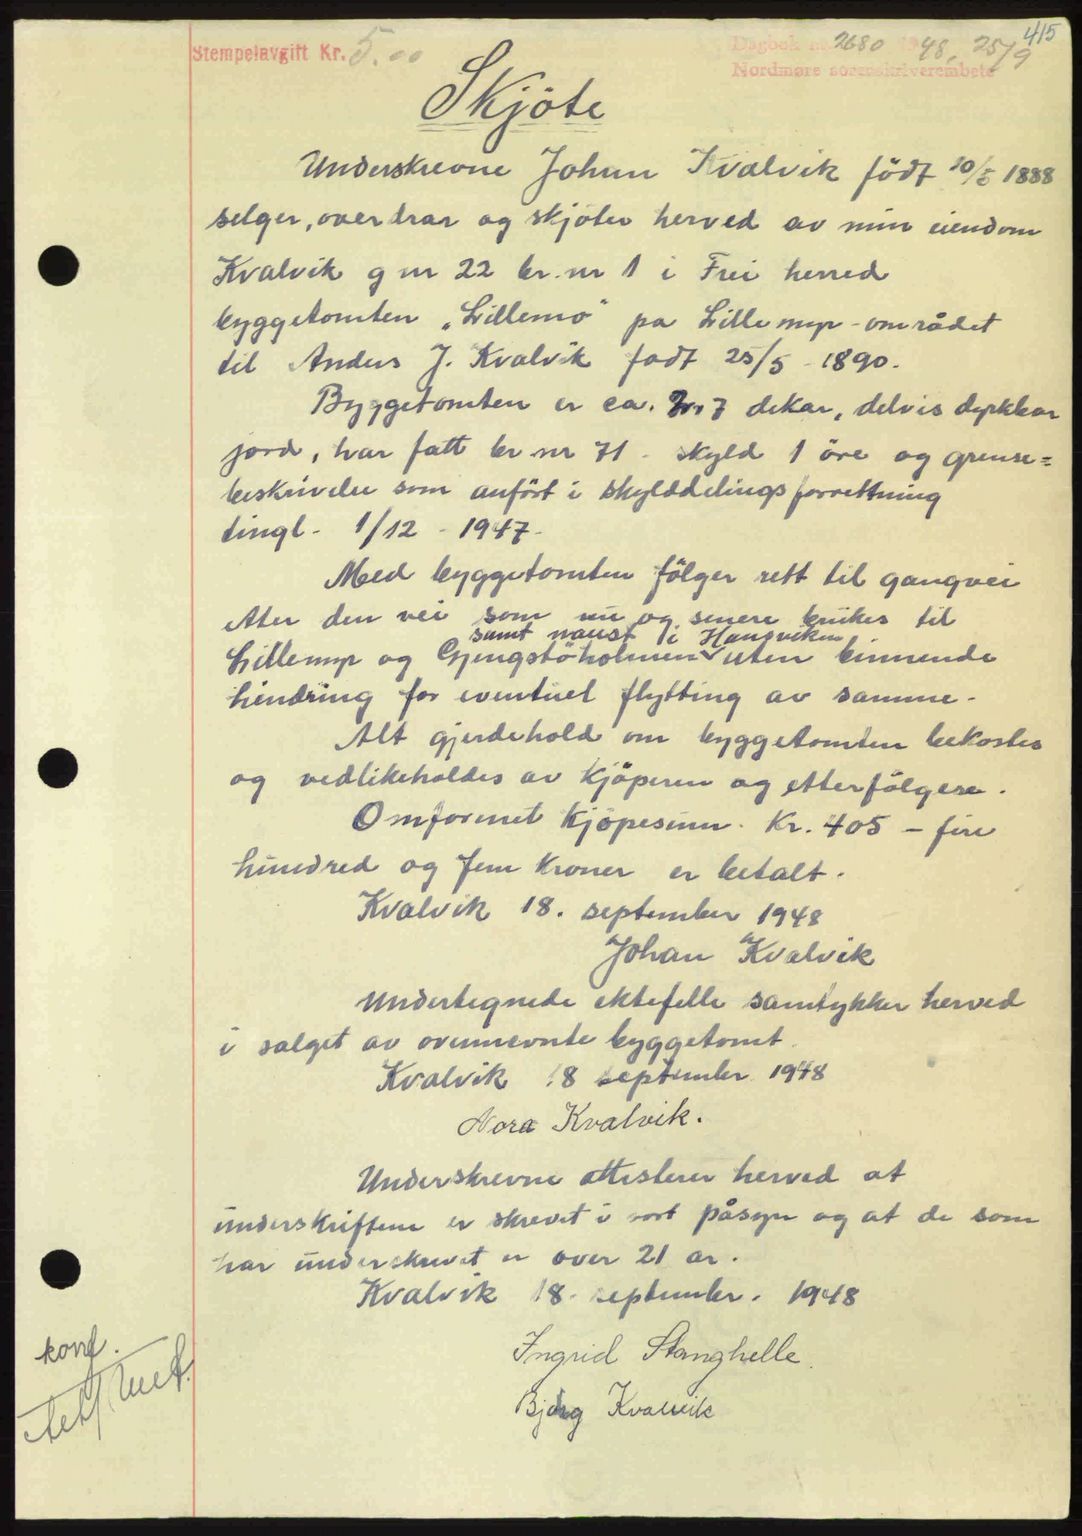 415
Stempelavgift Kr. 5.00
Dagbok nr. 2680 1948, 25/9
Nordmøre sorenskriverembete
Skjöte
Underskrevne Johan Kvalvik födt 10/5 1888
selger, overdrar og skjöter herved av min eiendom
Kvalvik g nr 22 br. nr 1 i Frei herred
byggetomten „Lillemo“ pa Lillemyr-området
til Anders J. Kvalvik fodt 25/5 - 1890.
Byggetomten er ca. 7 dekar, delvis dyrkbar
jord, har fatt br nr 71 - skyld 1 öre og grense=
beskrivelse som anfört i skylddelingsforrettning
tingl. 1/12 - 1947.
Med byggetomten fölger rett til gangvei
etter den vei som nu og senere brukes til
samt naust i Hansviken
Lillemyr og Gjengstöholmen uten
hindring for eventuel flytting av samme.
Alt gjerdehold om byggetomten bekostes
og vedlikeholdes av kjöperen og etterfölgere.
Omforenet kjöpesum Kr. 405 – fire
hundred og fem kroner er betalt.
Kvalvik 18. september 1948
Johan Kvalvik
Undertegnede ektefelle samtykker herved
i salget av ovennevnte byggetomt.
Kvalvik 18 september 1948
Nora Kvalvik.
Underskrevne attesterer herved at
underskriftene er skrevet i vort påsyn og at de som
har underskrevet er over 21 ar.
Kvalvik 18. september. 1948
Ingrid Stanghelle
Bjørg Kvalvik
konf.